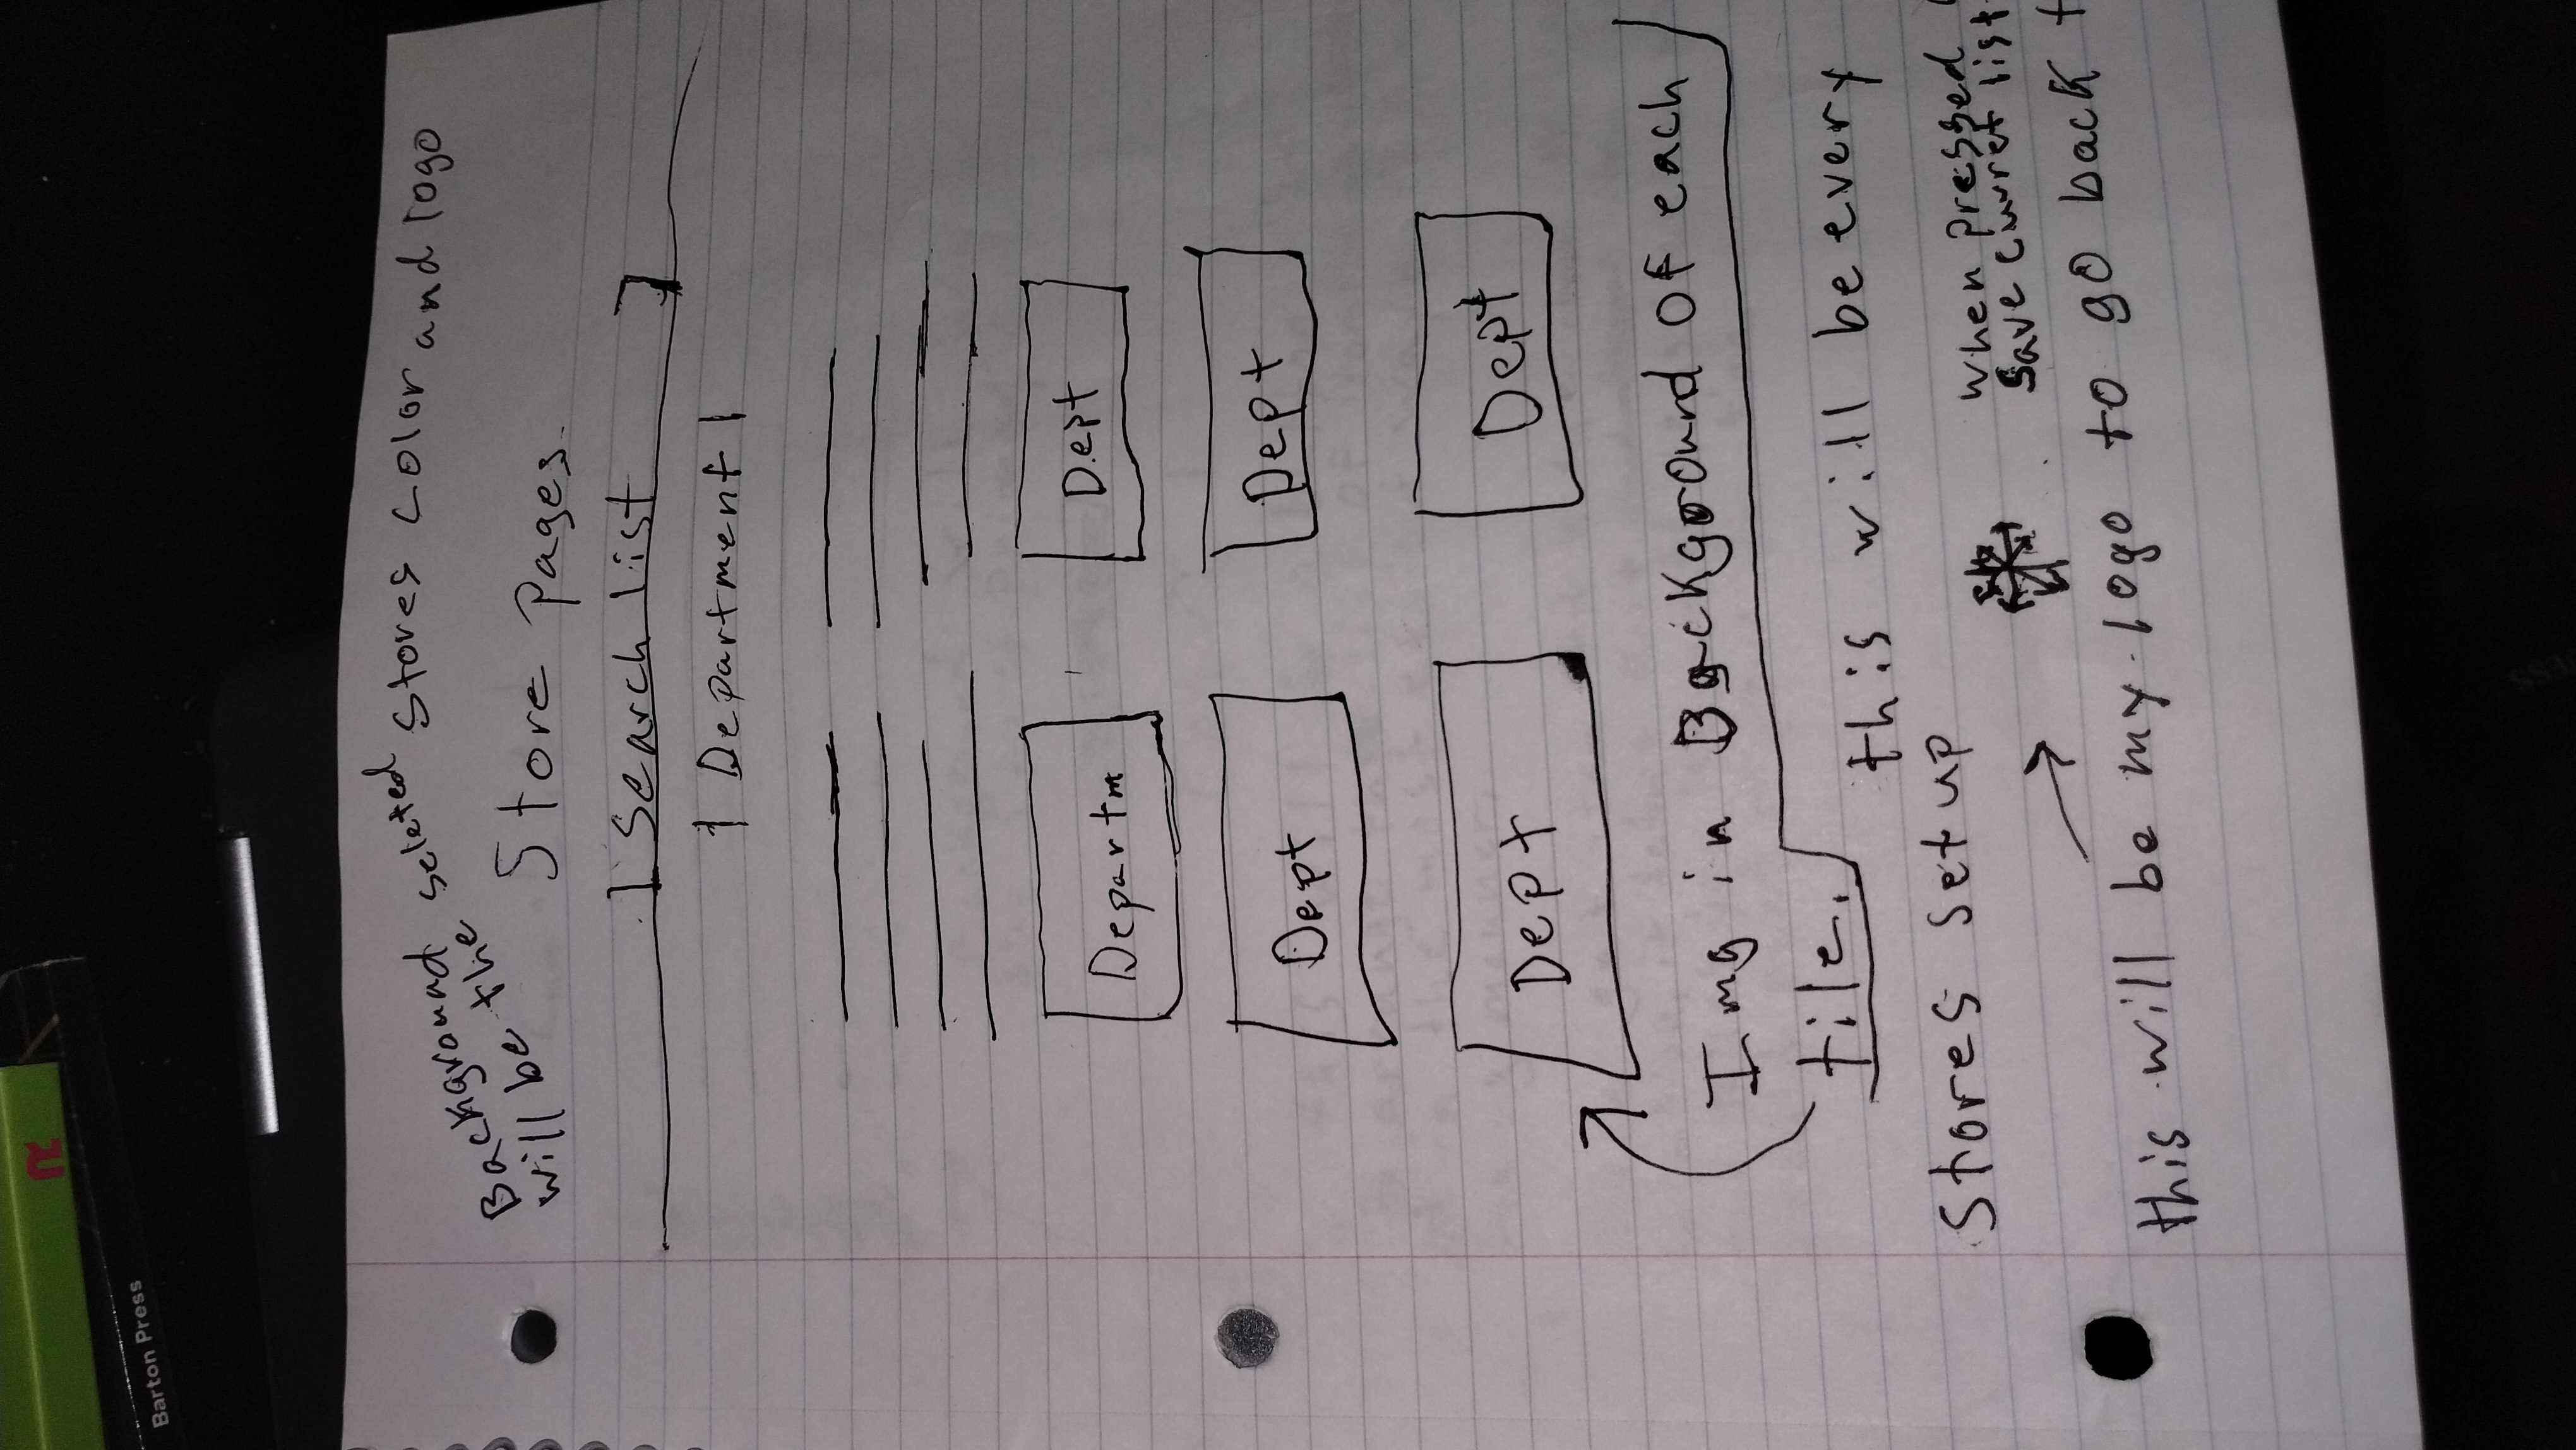 R
Barton Press
Background
will be the seleted stores color and logo
Store pages.
[ Search list ]
| Department |
Departm
Dept
Dept
Dept
Dept
Dept
Img in Background of each
tile.
this will be every
Stores setup
when pressed
Save curret list
this will be my logo to go back